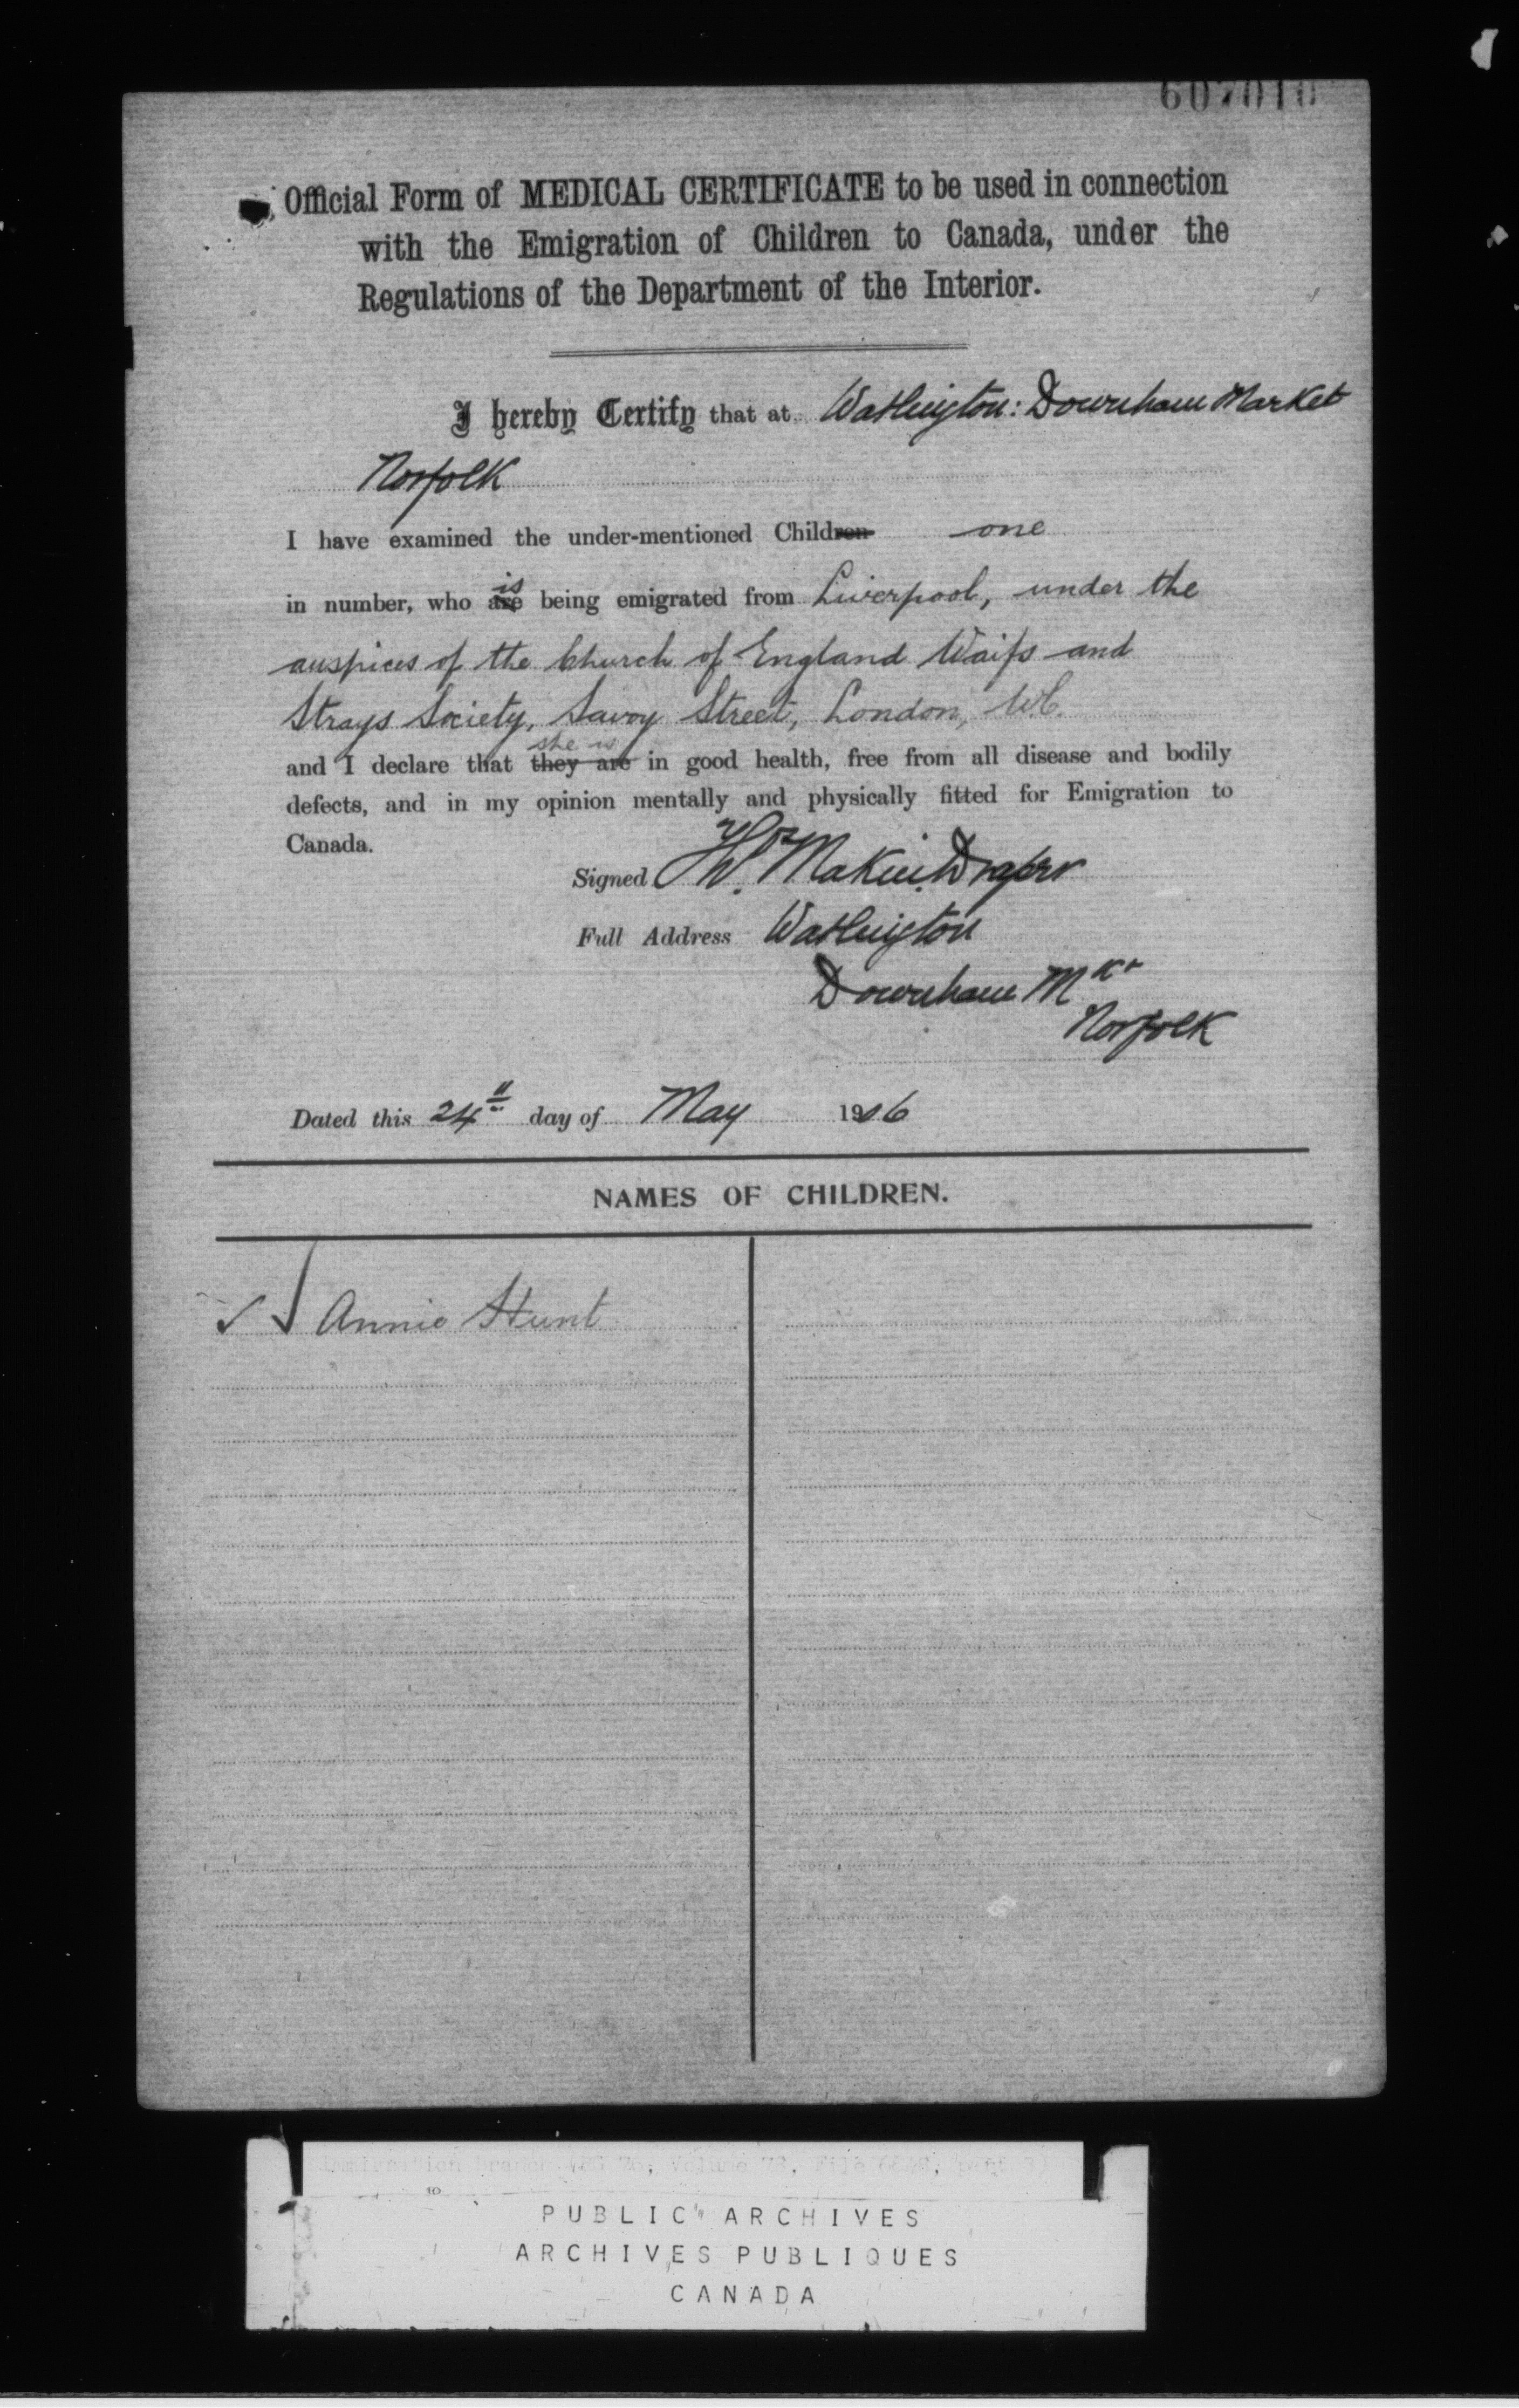 607010
Official Form of MEDICAL CERTIFICATE to be used in connection
with the Emigration of Children to Canada, under the
Regulations of the Department of the Interior.
I hereby Certify that at Watlington: Downham Market
Norfolk
I have examined the under-mentioned Children one
is
in number, who are being emigrated from Liverpool, under the
auspices of the Church of England Waifs and
Strays Society, Savoy Street, London, W.C.
she is
and I declare that they are in good health, free from all disease and bodily
defects, and in my opinion mentally and physically fitted for Emigration to
Canada.
Signed W. Makin Draper
Full Address Watlington
Downham Mkt
Norfolk
Dated this 24th day of May 1906
NAMES OF CHILDREN.
Annie Hunt
Immigration Branch, RG 76, Volume
PUBLIC ARCHIVES
ARCHIVES PUBLIQUES
CANADA